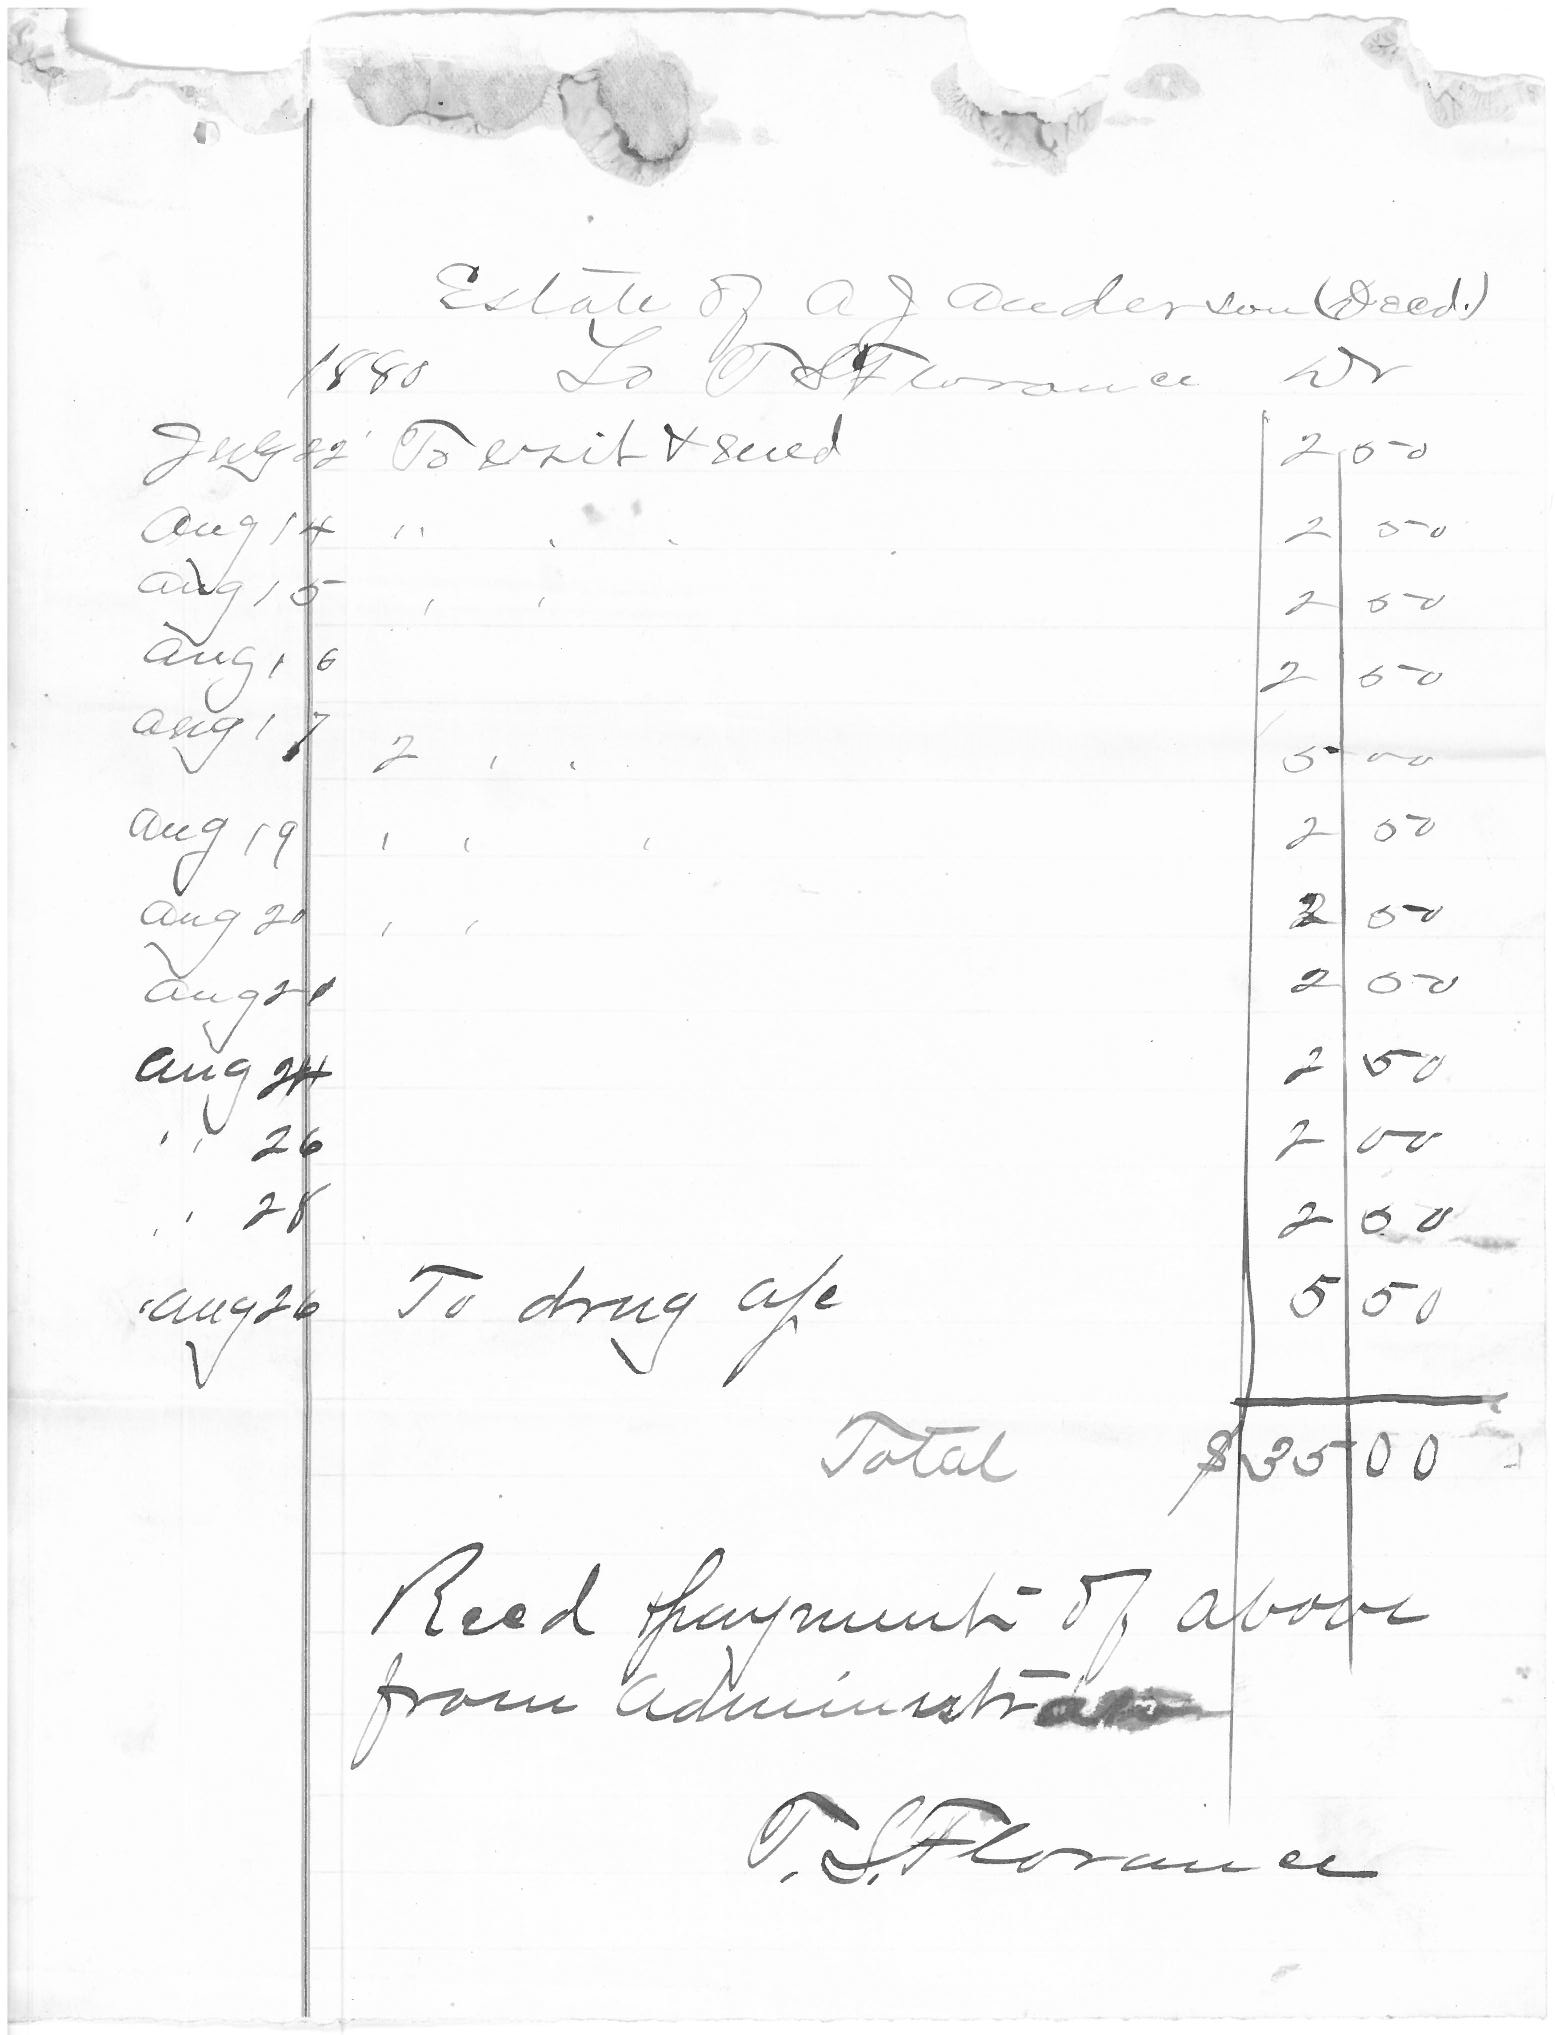 Estate of A J Anderson (Decd.)
1880 To T S Florance Dr
July 22 To visit & med 2 50
Aug 14 " " " 2 50
Aug 15 " " 2 50
Aug 16 2 50
Aug 17 2 " " 5 00
Aug 19 " " " 2 50
Aug 20 " " 2 50
Aug 21 2 50
Aug 24 2 50
" 26 2 00
" 28 2 50
Aug 26 To drug a/c 5 50
Total $35 00
Recd payment of above
from Administrator
T. S. Florance